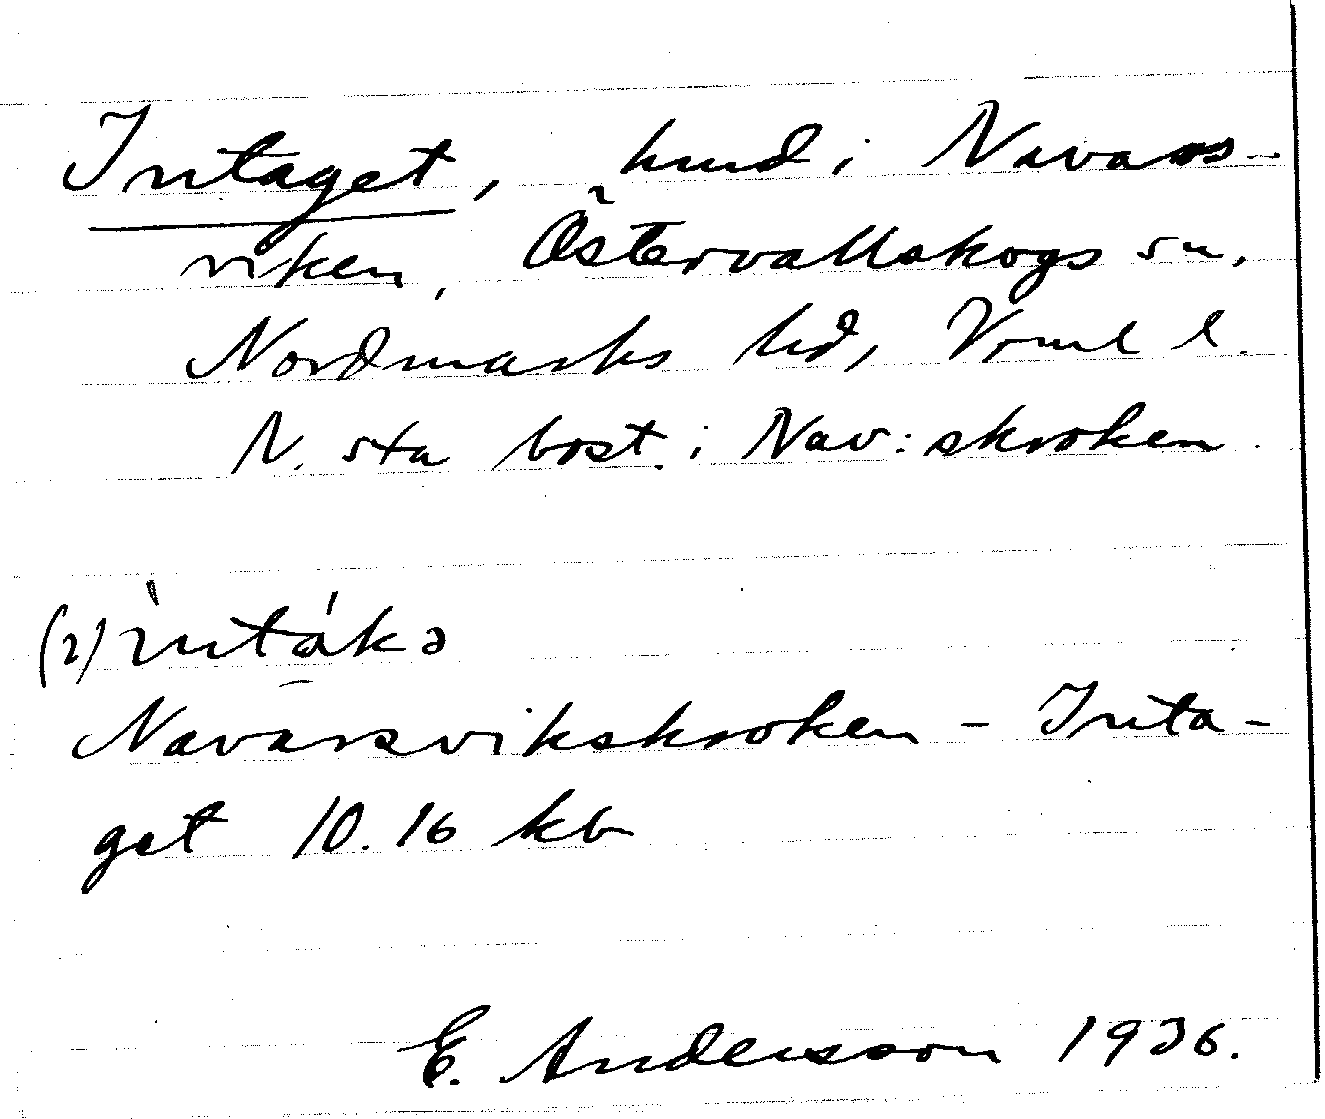 Intaget, hmd i Navars-
viken, Östervallskogs sn,
Nordmarks hd, Verml l.
N. sta bost. i Nav:skroken
(2) ìntákə
Navarsvikskroken - Inta-
get 10.16 kb
E. Andersson 1936.